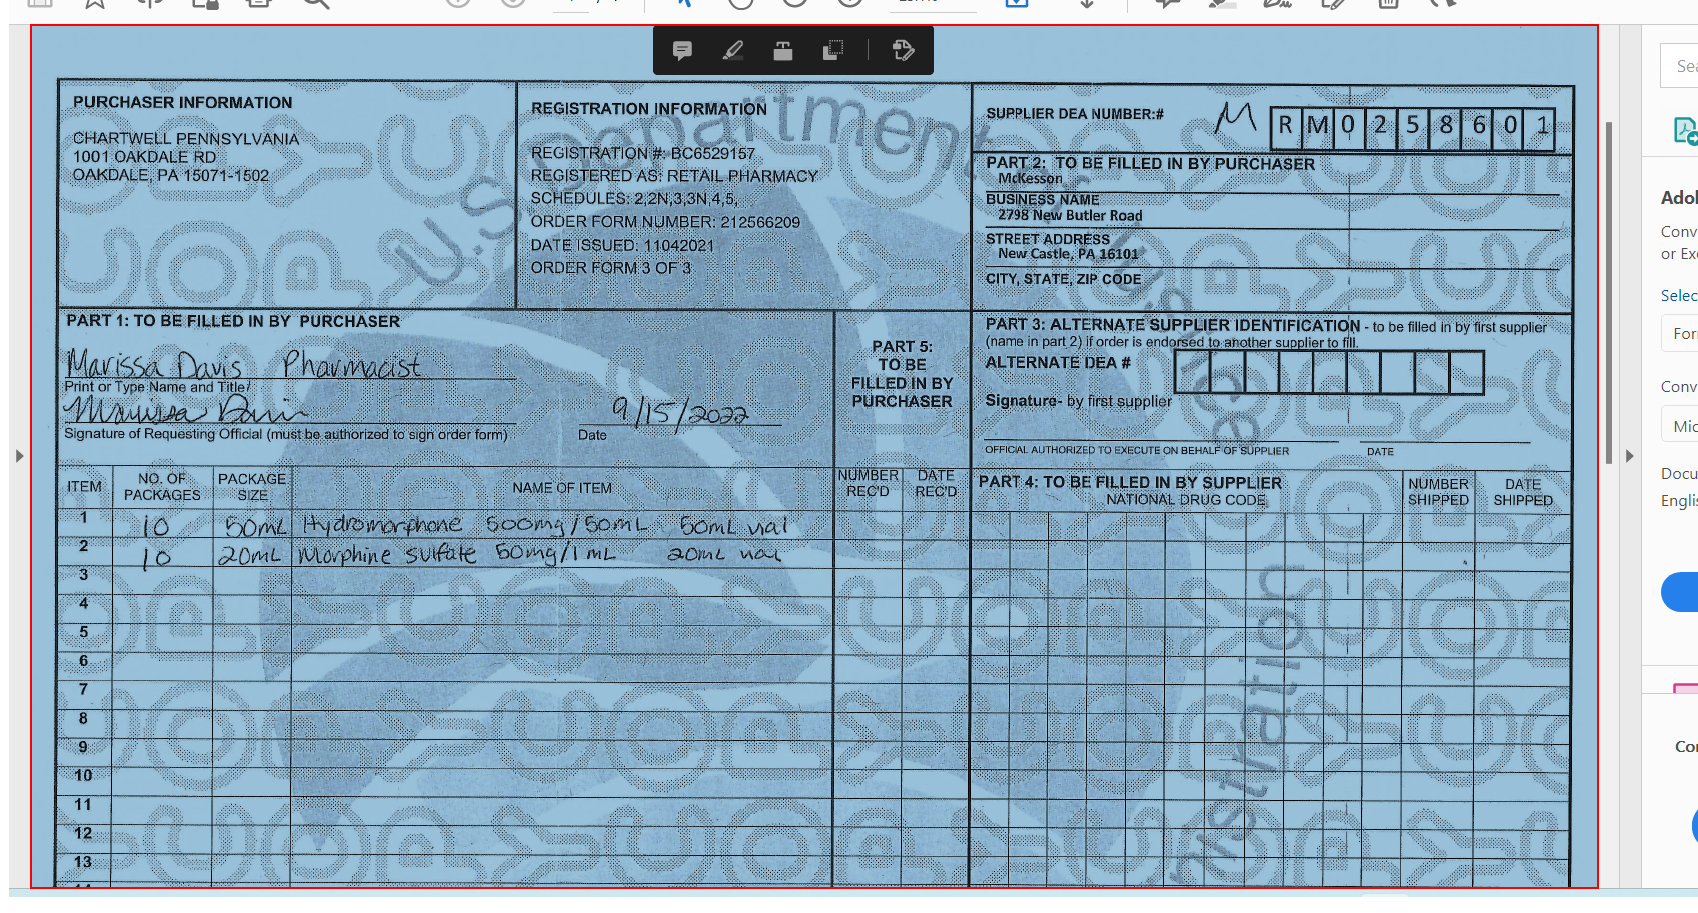 PURCHASER INFORMATION
CHARTWELL PENNSYLVANIA
1001 OAKDALE RD
OAKDALE, PA 15071-1502
REGISTRATION INFORMATION
REGISTRATION #: BC6529157
REGISTERED AS: RETAIL PHARMACY
SCHEDULES: 2,2N,3,3N,4,5,
ORDER FORM NUMBER: 212566209
DATE ISSUED: 11042021
ORDER FORM 3 OF 3
SUPPLIER DEA NUMBER:# M R M 0 2 5 8 6 0 1
PART 2: TO BE FILLED IN BY PURCHASER
McKesson
BUSINESS NAME
2798 New Butler Road
STREET ADDRESS
New Castle, PA 16101
CITY, STATE, ZIP CODE
PART 1: TO BE FILLED IN BY PURCHASER
Marissa Davis Pharmacist
Print or Type Name and Title
Marissa Davis 9/15/2022
Signature of Requesting Official (must be authorized to sign order form) Date
PART 5:
TO BE
FILLED IN BY
PURCHASER
PART 3: ALTERNATE SUPPLIER IDENTIFICATION - to be filled in by first supplier
(name in part 2) if order is endorsed to another supplier to fill.
ALTERNATE DEA #
Signature- by first supplier
OFFICIAL AUTHORIZED TO EXECUTE ON BEHALF OF SUPPLIER DATE
ITEM NO. OF PACKAGES PACKAGE SIZE NAME OF ITEM NUMBER REC'D DATE REC'D
PART 4: TO BE FILLED IN BY SUPPLIER
NATIONAL DRUG CODE NUMBER SHIPPED DATE SHIPPED
1 10 50mL Hydromorphone 500mg/50mL 50mL vial
2 10 20mL Morphine sulfate 50mg/1mL 20mL vial
3
4
5
6
7
8
9
10
11
12
13
U.S. Department
Justice
Conv
or Ex
Selec
For
Conv
Mic
Docu
Englis